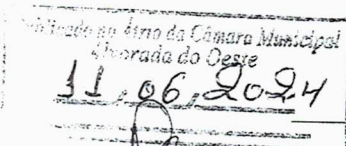 Publicado no átrio da Câmara Municipal
Alvorada do Oeste
11,06,2024